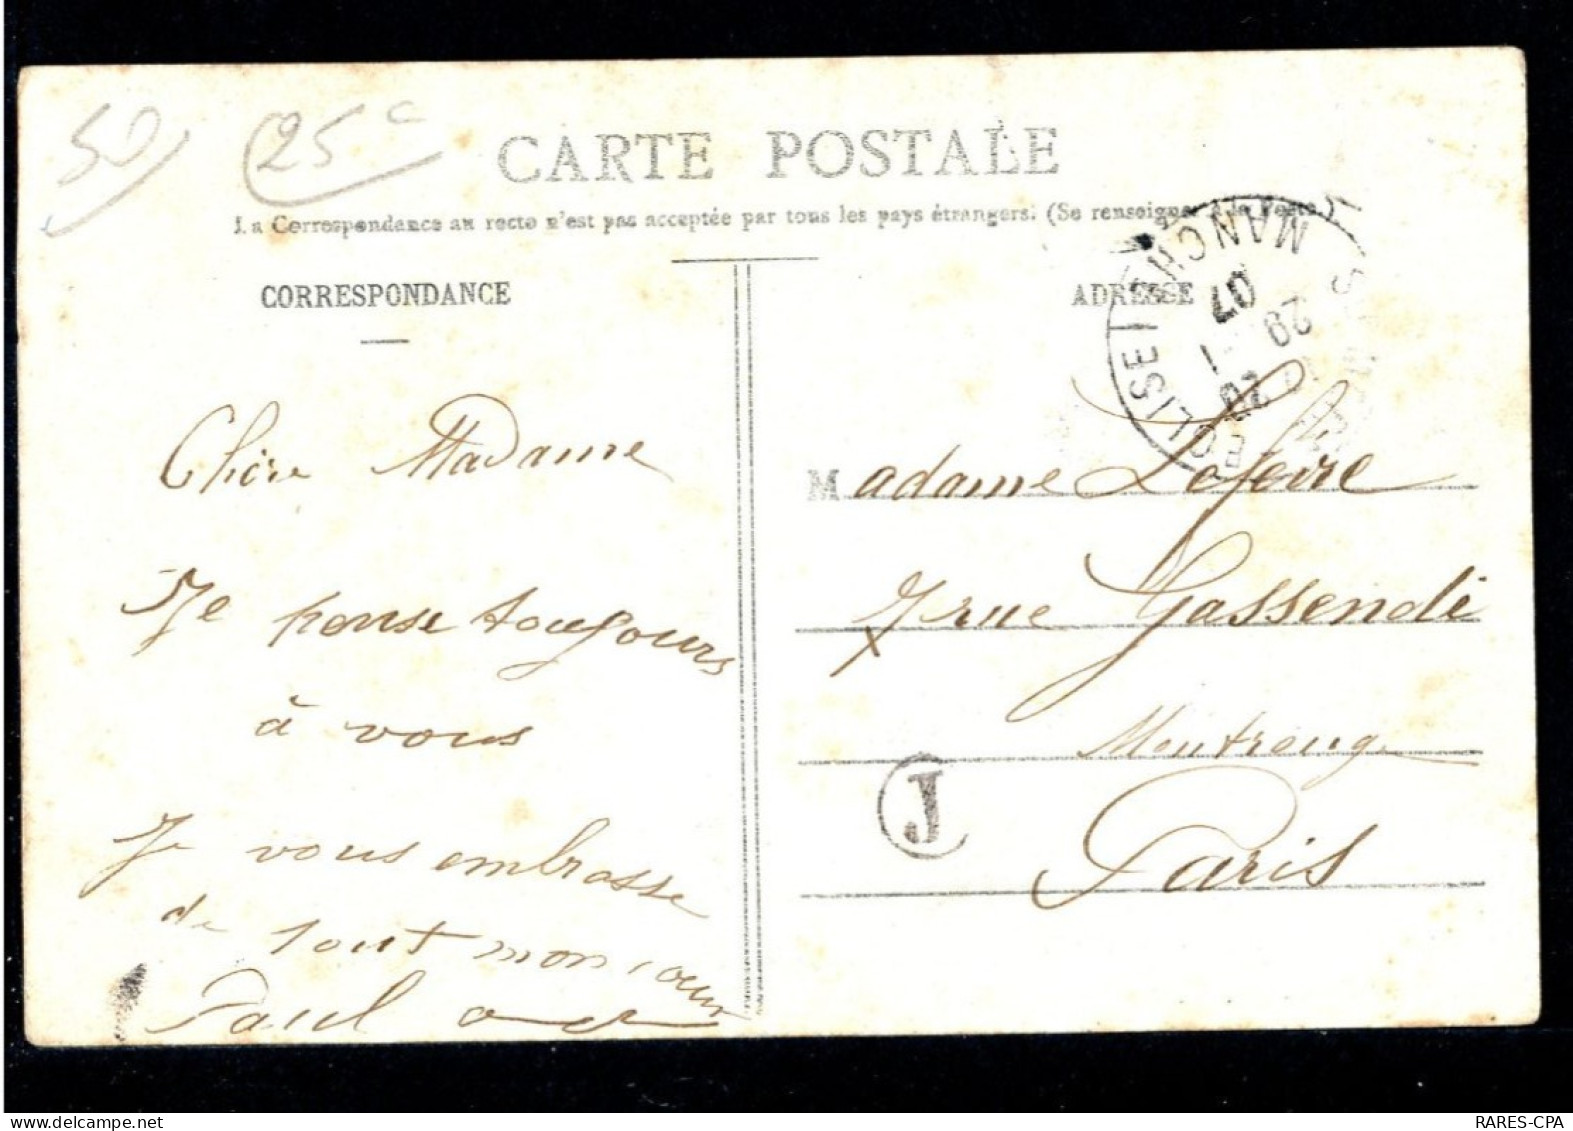 50 25c
CARTE POSTALE
La Correspondance au recto n'est pas acceptée par tous les pays étrangers. (Se renseigner à la Poste)
CORRESPONDANCE
ADRESSE
MANCHE
07
29 - 1
20
EGLISE
Chère Madame
Je pense toujours
à vous
Je vous embrasse
de tout mon cœur
Paul
Madame Lefevre
7 rue Gassendi
Montrouge
Paris
J
delcampe.net
RARES-CPA